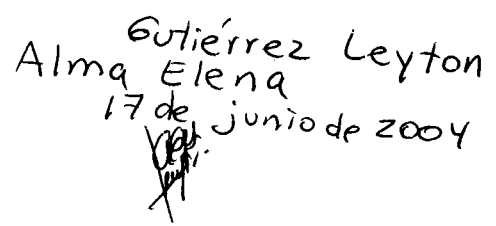 Gutiérrez Leyton
Alma Elena
17 de junio de 2004